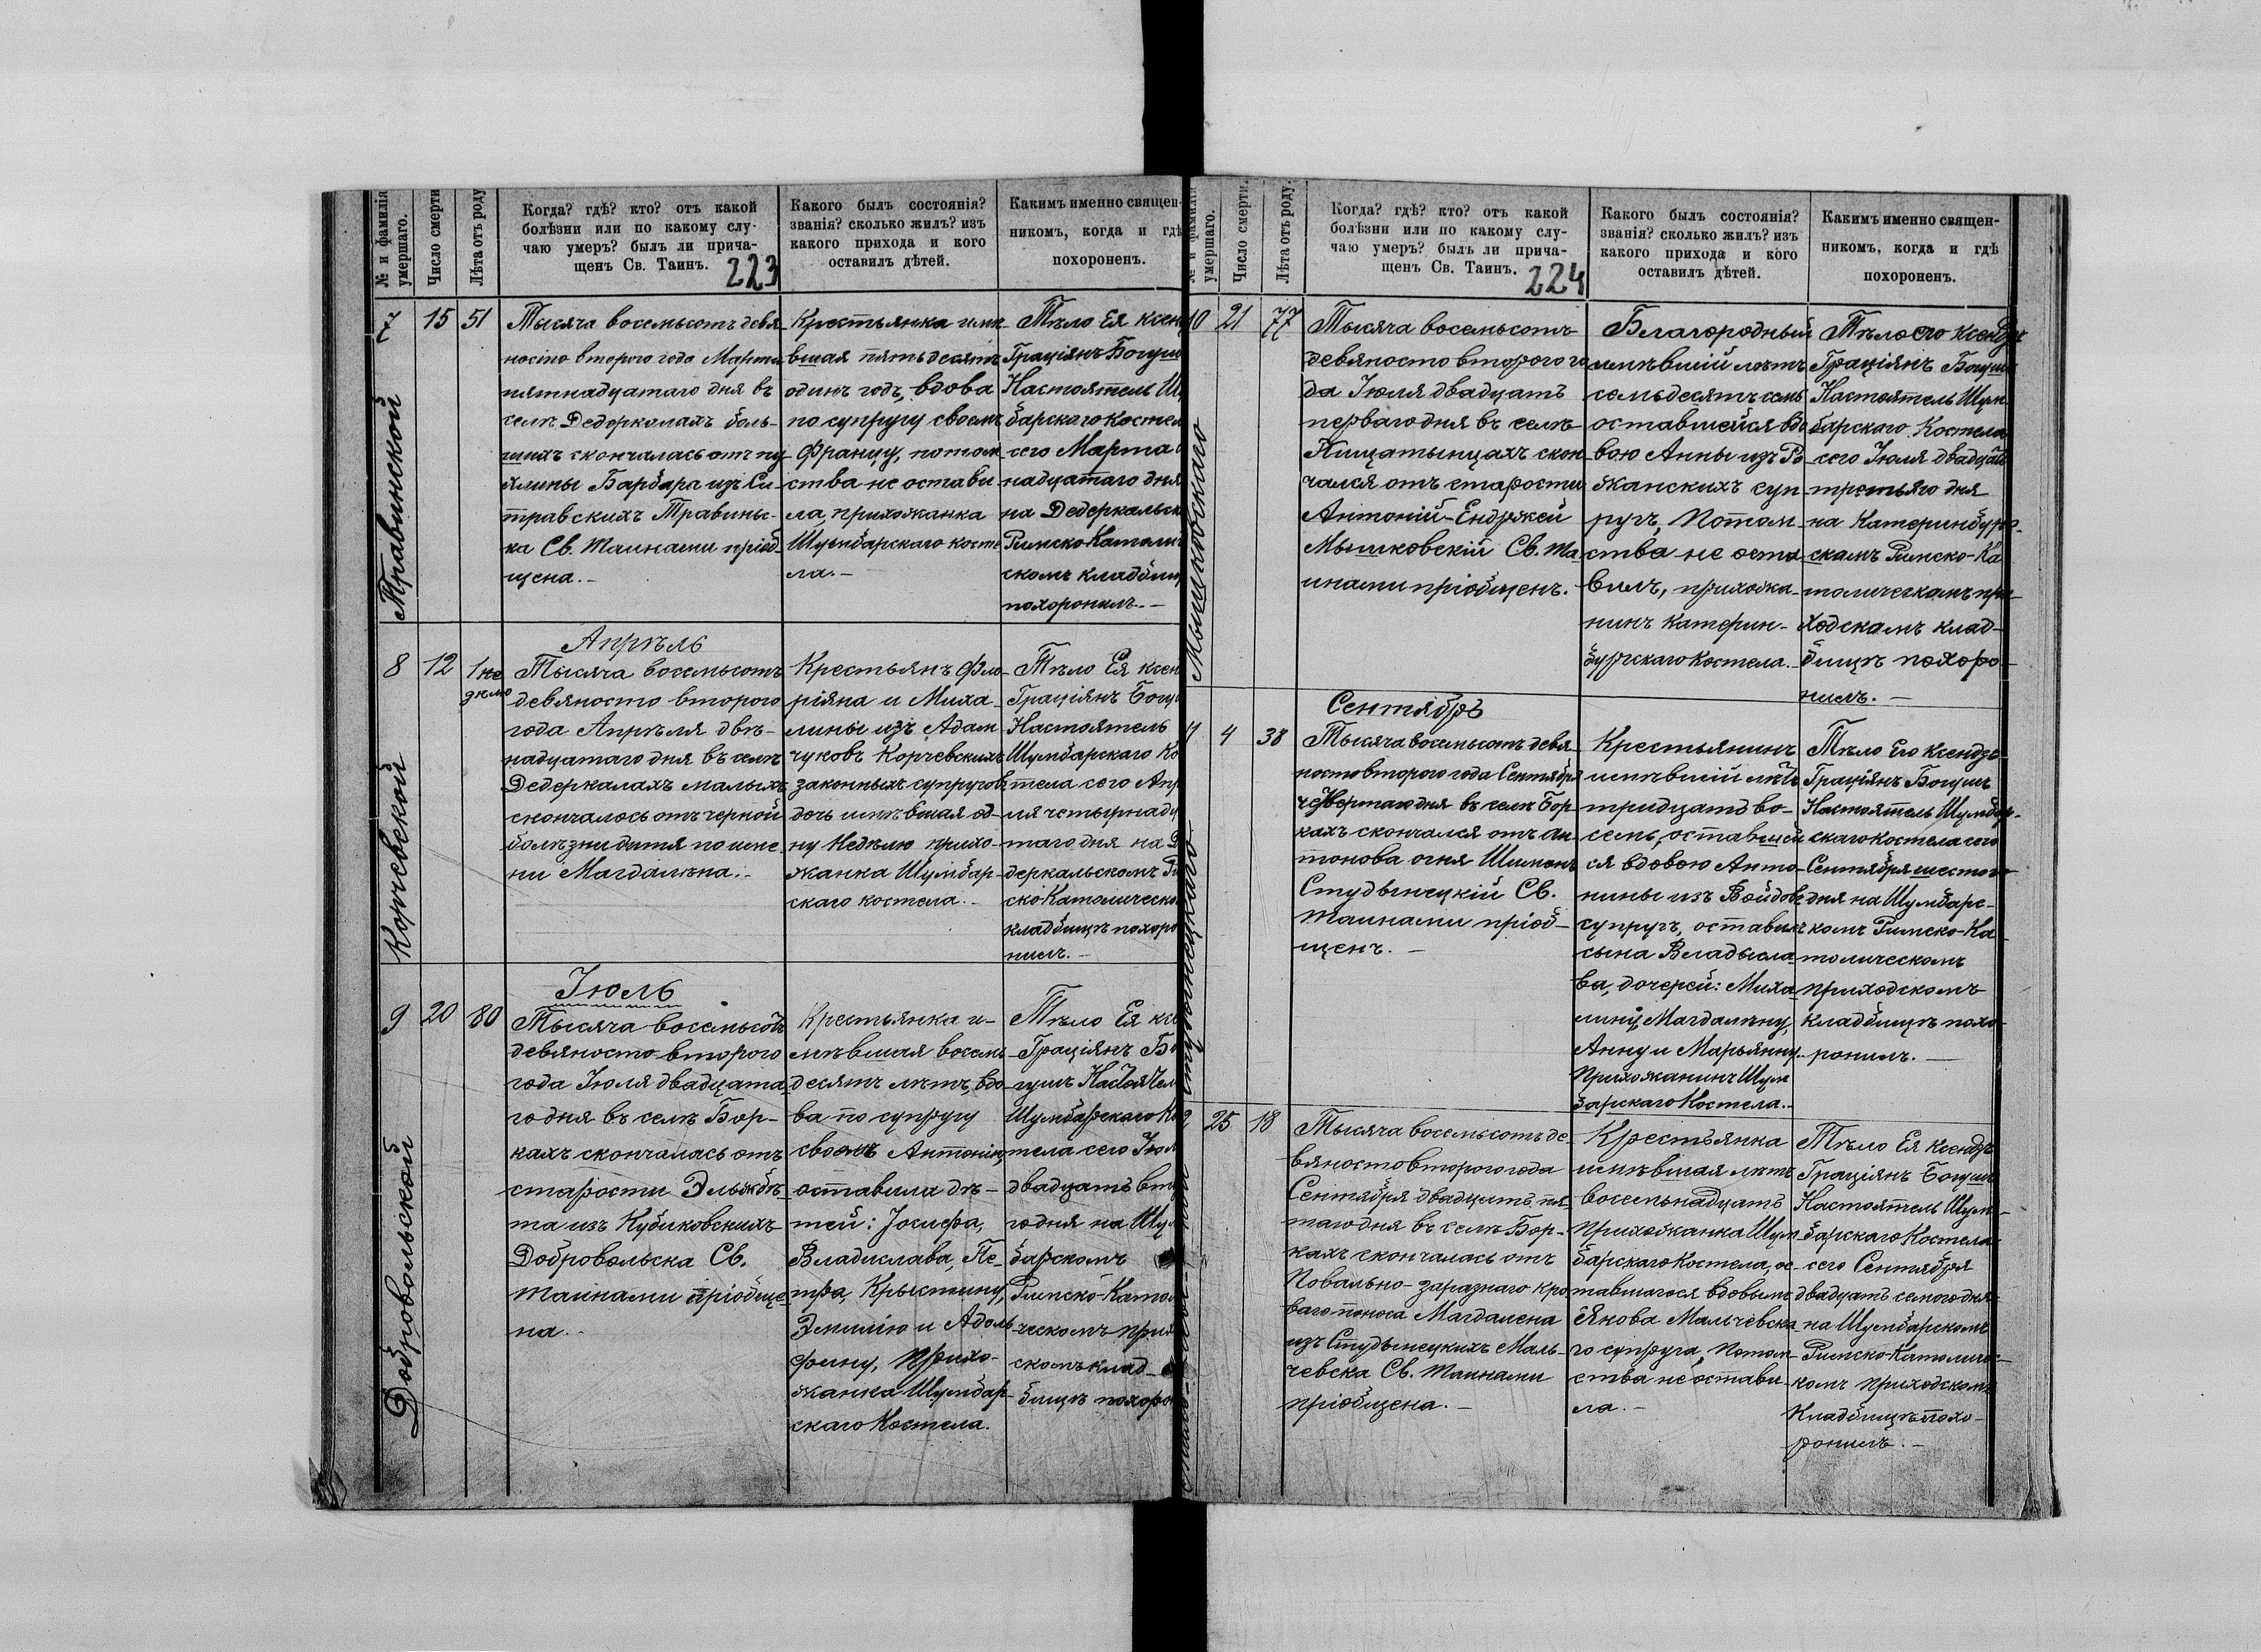 № и фамилія умершаго.
Число смерти
Лѣта отъ роду
Когда? гдѣ? кто? отъ какой
болѣзни или по какому слу-
чаю умеръ? былъ ли прича-
щенъ Св. Таинъ.
223
Какого былъ состоянія?
званія? сколько жилъ? изъ
какого прихода и кого
оставилъ дѣтей.
Какимъ именно священ-
никомъ, когда и гдѣ
похороненъ.
7
Травинской
15
51
Тысяча восемьсотъ девя-
носто второго года Марта
пятнадцатаго дня въ
селѣ Дедеркалахъ боль-
шихъ скончалась отъ пу-
хлины Барбара изъ Си-
травскихъ Травинс-
ка Св. Таинами пріоб-
щена.-
Крестьянка имѣ-
вшая пятьдесятъ
одинъ годъ, вдова
по супругу своемъ
Францу, потом-
ства не остави-
ла, прихожанка
Шумбарскаго косте-
ла.-
Тѣло Ея ксен
Граціянъ Богуш
Настоятель Шу
барскаго Костел
сего Марта
надцатаго дня
на Дедеркальск
Римско-Католич
скомъ кладбищ
похоронилъ.-
Апрѣль
8
Корчевской
12
1 не
дѣлю
Тысяча восемьсотъ
девяносто второго
года Апрѣля двѣ-
надцатаго дня въ селѣ
Дедеркалахъ малыхъ
скончалось отъ черной
болѣзни дитя по име-
ни Магдалѣна.-
Крестьянъ Фло-
ріяна и Миха-
лины изъ Адам-
чуковъ Корчевскихъ
законныхъ супруговъ
дочь имѣвшая од-
ну Недѣлю прихо-
жанка Шумбар-
скаго костела.-
Тѣло Ея ксен
Граціянъ Богу
Настоятель
Шумбарскаго Ко
тела сего Апр
ля четырнадц
таго дня на Д
деркальскомъ Р
ско-Католическо
кладбищѣ похоро
нилъ.-
Іюль
9
Добровольской
20
80
Тысяча восемьсотъ
девяносто второго
года Іюля двадцата-
го дня въ селѣ Бор-
кахъ скончалась отъ
старости Эльжбѣ-
та изъ Кубиковскихъ
Добровольска Св.
Таинами пріобще-
на.-
Крестьянка и-
мѣвшая восемь-
десятъ лѣтъ, вдо-
ва по супругу
своемъ Антоніи,
оставила дѣ-
тей: Іосифа,
Владислава, Пе-
тра, Крыстину,
Эмилію и Адоль-
фину, прихо-
жанка Шумбар-
скаго Костела.
Тѣло Ея ксе
Граціянъ Бо
гушъ Настоятел
Шумбарскаго Ко
тела сего Іюл
двадцать вто
го дня на Шум
барскомъ
Римско-Като
ческомъ прих
скомъ клад-
бищѣ похоро
№ и фамилія умершаго.
Число смерти.
Лѣта отъ роду.
Когда? гдѣ? кто? отъ какой
болѣзни или по какому слу-
чаю умеръ? былъ ли прича-
щенъ Св. Таинъ.
224
Какого былъ состоянія?
званія? сколько жилъ? изъ
какого прихода и кого
оставилъ дѣтей.
Какимъ именно священ-
никомъ, когда и гдѣ
похороненъ.
10
Мышковскаго
21
77
Тысяча восемьсотъ
девяносто второго го-
да Іюля двадцать
перваго дня въ селѣ
скон-
чался отъ старости
Антоній-Енджей
Мышковскій Св. Та-
инами пріобщенъ.
Благородный
имѣвшій лѣтъ
семьдесятъ семь
оставшейся вдо-
вою Анны изъ Ро-
жанскихъ суп-
ругъ, Потом-
ства не оста-
вилъ, прихожа-
нинъ Катерин-
бургскаго Костела.-
Тѣло его Ксендзъ
Граціянъ Богушъ
Настоятель Шум-
барскаго Костела
сего Іюля двадцать
третьяго дня
на Катеринбург-
скамъ Римско-Ка-
толическомъ при-
ходскамъ клад-
бищѣ похоро-
нилъ.-
Сентябрь
11
4
38
Тысяча восемьсотъ девя-
носто второго года Сентября
четвертаго дня въ селѣ Бор-
кахъ скончался отъ ан-
тонова огня Шимонъ
Студзинецкій Св.
Таинами пріоб-
щенъ.-
Крестьянинъ
имѣвшій лѣтъ
тридцать во-
семь, оставшей-
ся вдовою Анто-
нины изъ Войдовъ
супругъ, оставилъ
сына Владысла-
ва, дочерей: Миха-
лину, Магдалѣну,
Анну и Марьянну.-
Прихожанинъ Шум-
барскаго Костела.-
Тѣло Его Ксендзъ
Граціянъ Богушъ
Настоятель Шумбар-
скаго Костела сего
Сентября шестого
дня на Шумбарс-
комъ Римско-Ка-
толическомъ
приходскомъ
кладбищѣ похо-
ронилъ.-
25
18
Тысяча восемьсотъ де-
вяносто второго года
Сентября двадцать пя-
таго дня въ селѣ Бор-
кахъ скончалась отъ
Повально-заразнаго кро-
ваго поноса Магдалена
изъ Студзинецкихъ Маль-
чевска Св. Таинами
пріобщена.-
Крестьянка
имѣвшая лѣтъ
восемьнадцать
прихожанка Шум-
барскаго Костела, ос-
тавшагося вдовымъ
Янова Мальчевска-
го супруга, Потом-
ства не остави-
ла.-
Тѣло Ея Ксендзъ
Граціянъ Богушъ
Настоятель Шум-
барскаго Костела
сего Сентября
двадцать семого дня
на Шумбарскомъ
Римско-Католичес-
комъ приходскомъ
Кладбищѣ похо-
ронилъ.-